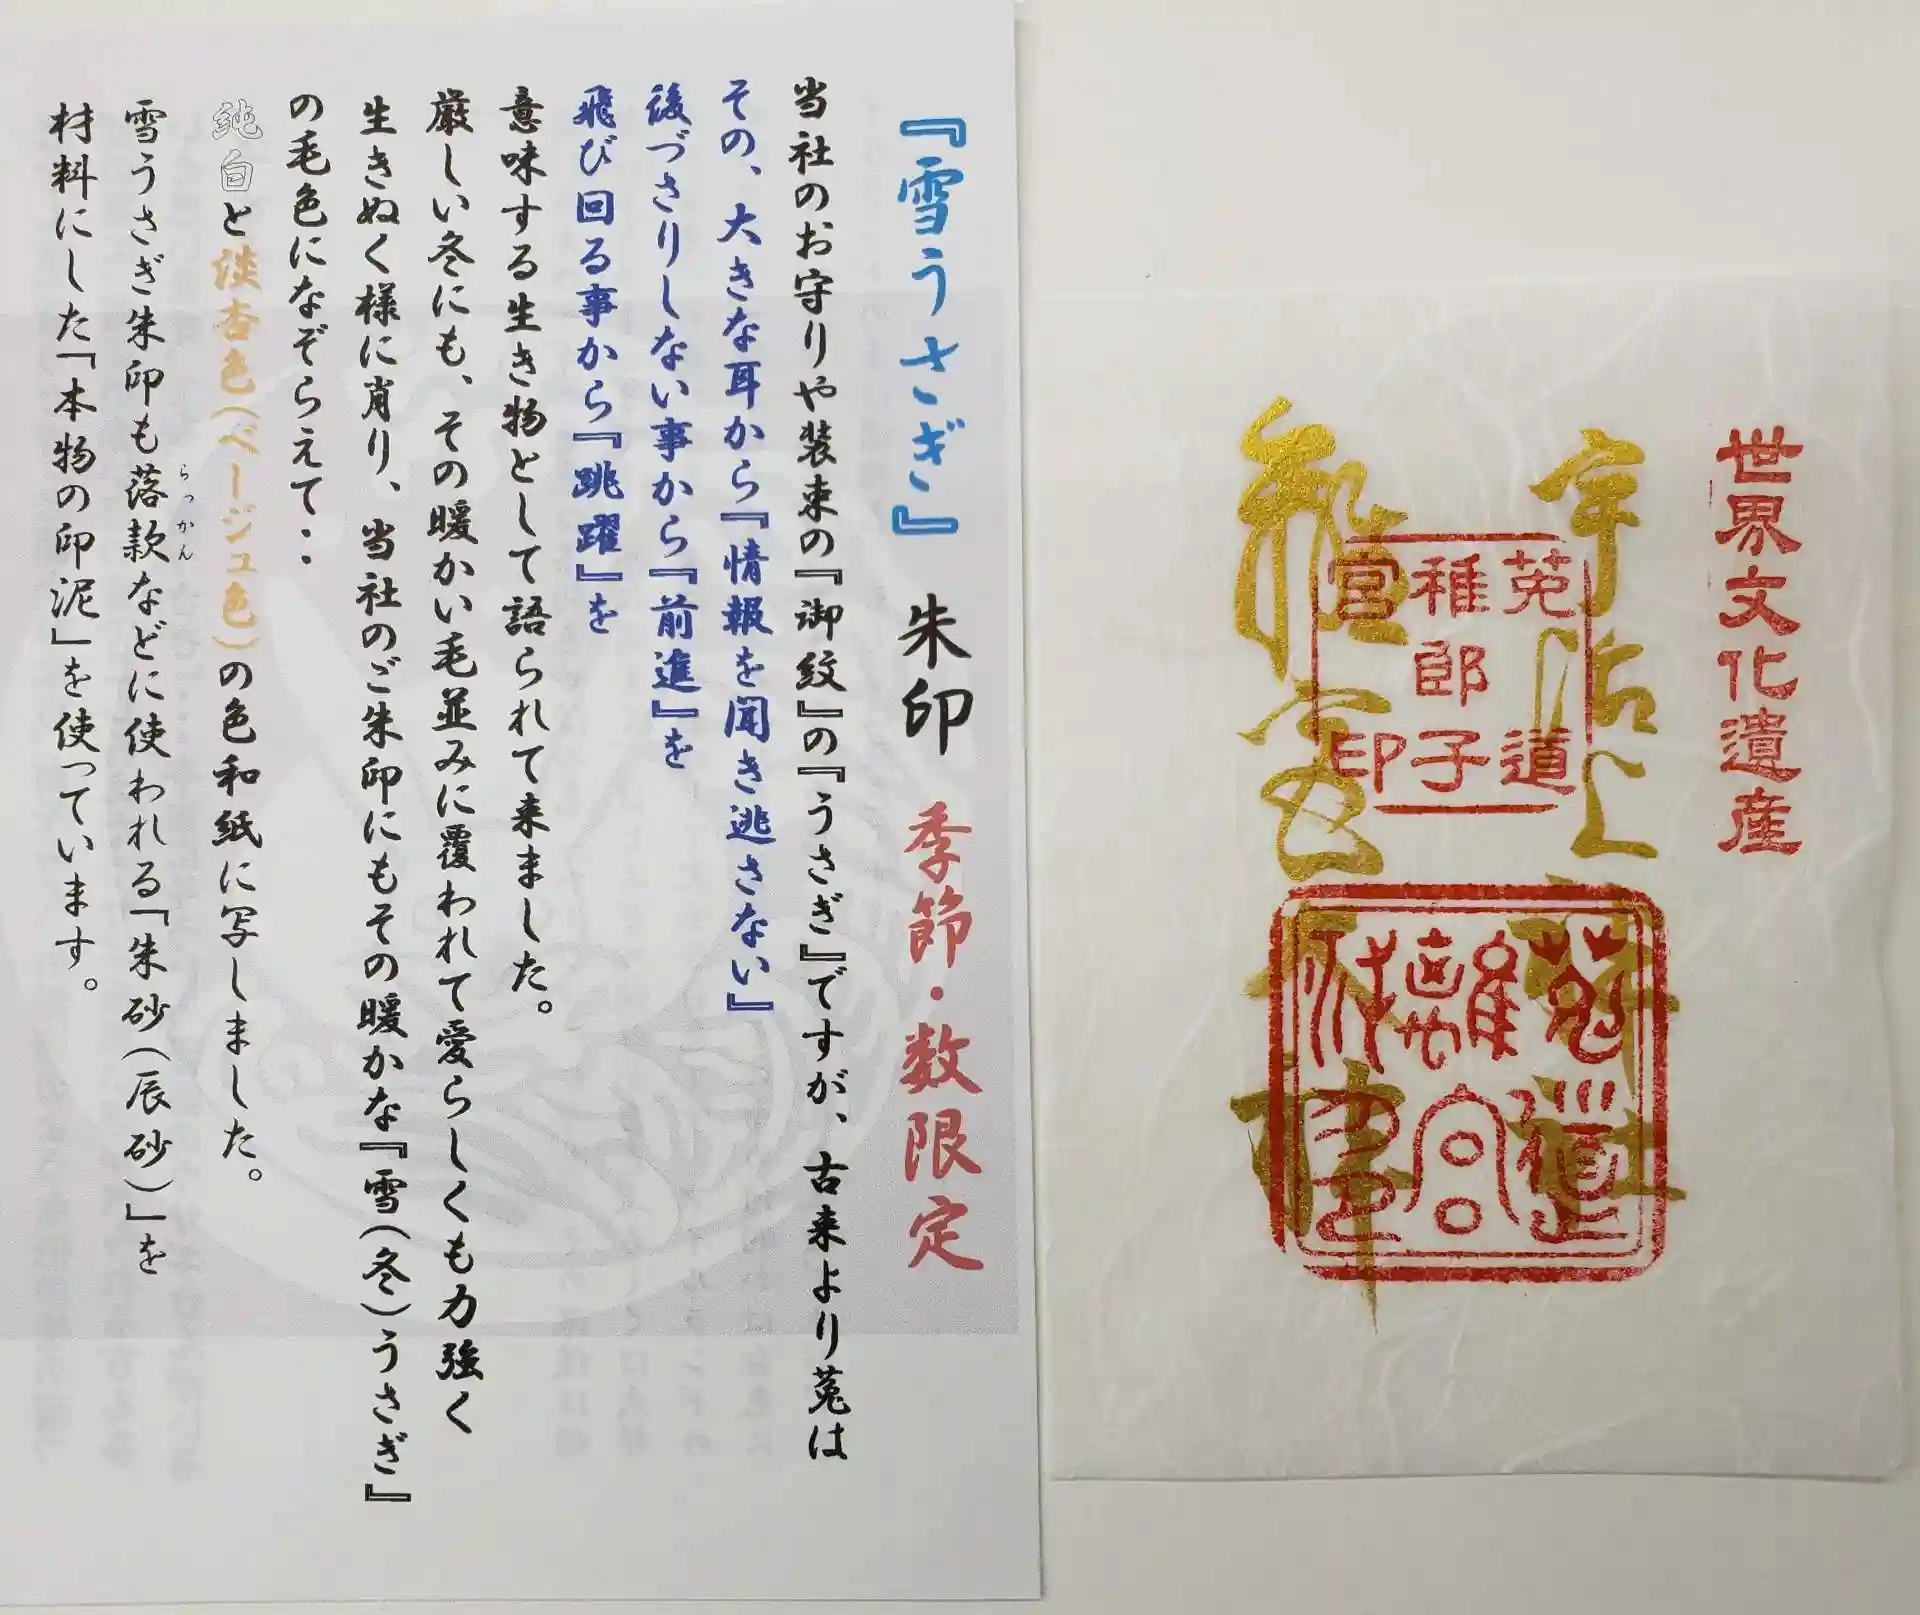 世界文化遺産
宇治上神社
莵道
稚郎子
宮印
莵道
離宮
『雪うさぎ』朱印 季節・数限定
当社のお守りや装束の『御紋』の『うさぎ』ですが、古来より莵は
その、大きな耳から『情報を聞き逃さない』
後づさりしない事から『前進』を
飛び回る事から『跳躍』を
意味する生き物として語られて来ました。
厳しい冬にも、その暖かい毛並みに覆われて愛らしくも力強く
生きぬく様に肖り、当社のご朱印にもその暖かな『雪(冬)うさぎ』
の毛色になぞらえて・・
純白と淡杏色(ベージュ色)の色和紙に写しました。
雪うさぎ朱印も落款などに使われる「朱砂(辰砂)」を
らっかん
材料にした「本物の印泥」を使っています。